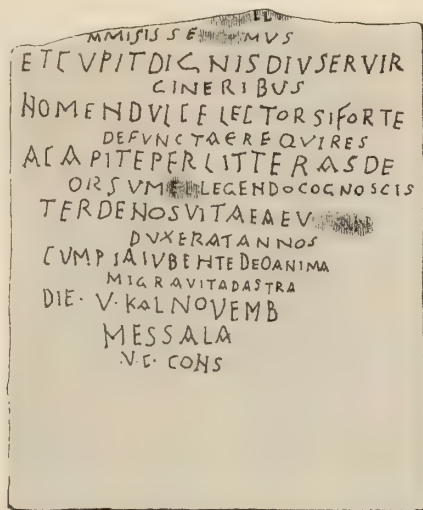 EL
MMISISSE MVS
ETCVPITDIGNISDIVSERVIR
CINERIBVS
NOMENDVLCELECTORSIFORTE
DEFVNCTAEREQVIRES
ACAPITEPERLITTERASDE
ORSVM LEGENDOCOGNOSCIS
TERDENOSVITAEAEV
DVXERATANNOS
CVMPIAIVBENTEDEOANIMA
MIGRAVITADASTRA
DIE· V· KALNOVEMB
MESSALA
·V·C· CONS